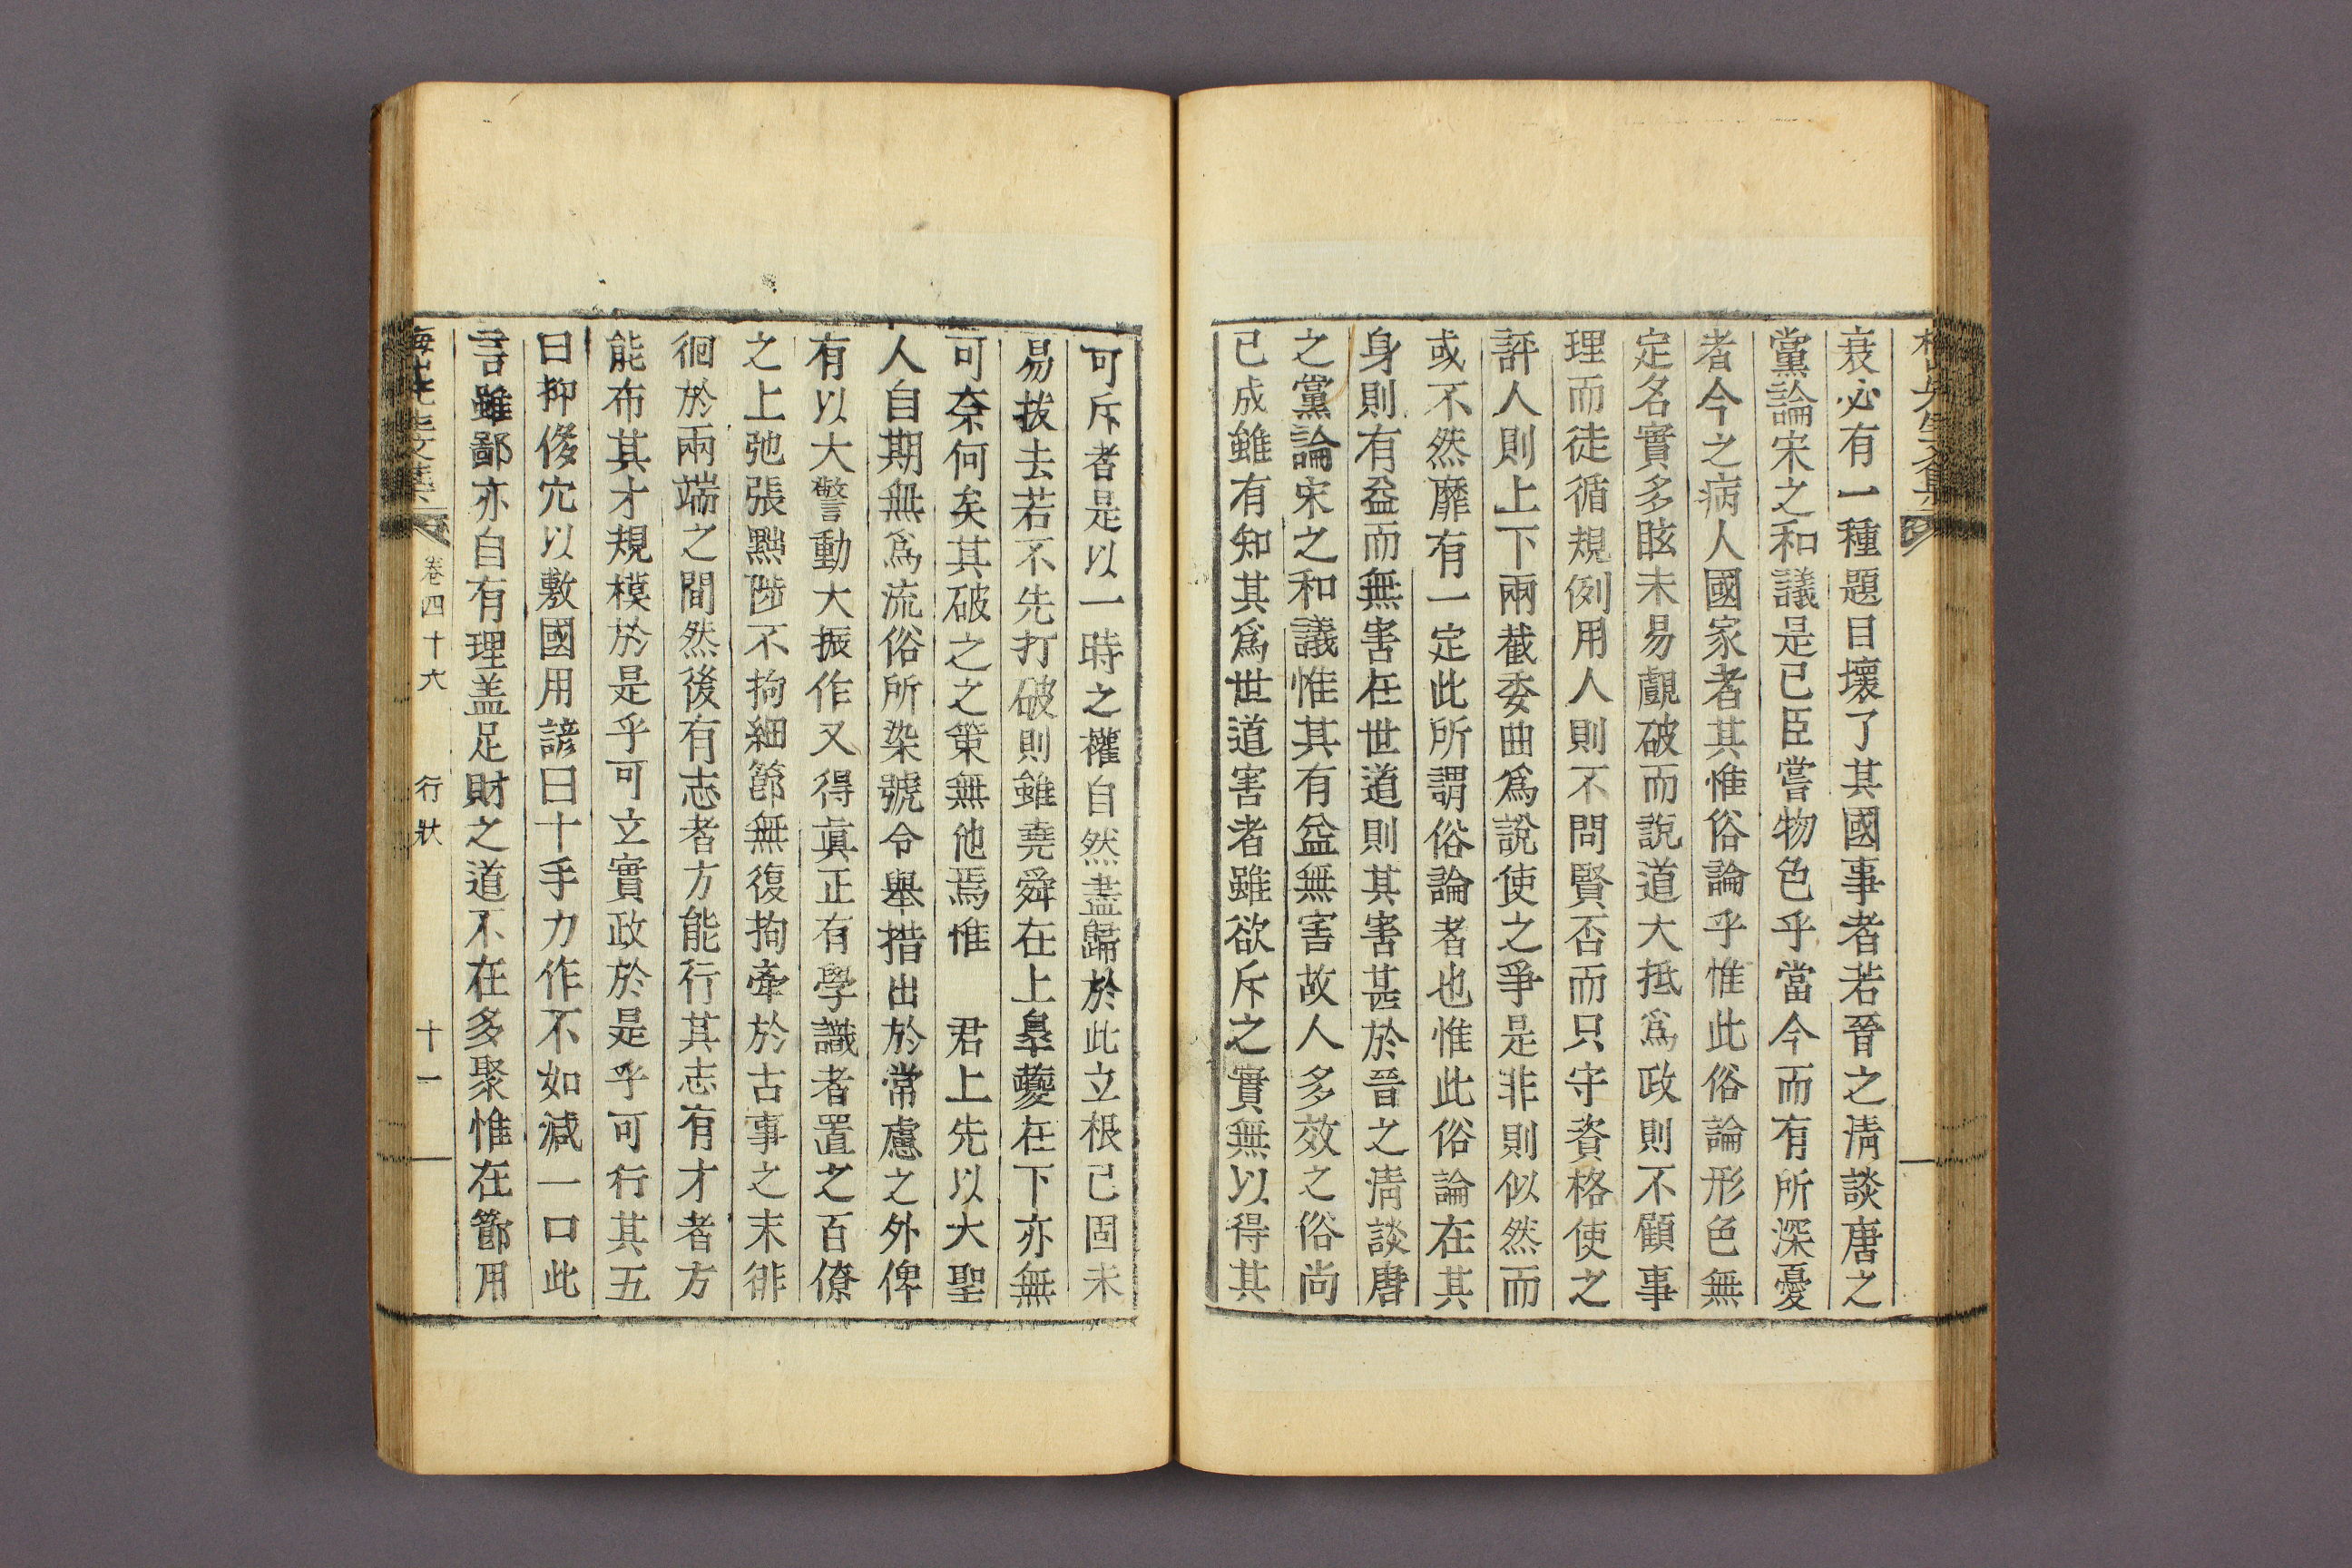 衰必有一種題目壞了其國事者若晉之淸談唐之
黨論宋之和議是已臣嘗物色乎當今而有所深憂
者今之病人國家者其惟俗論乎惟此俗論形色無
定名實多眩未易覰破而說道大抵爲政則不顧事
理而徒循規例用人則不問賢否而只守資格使之
評人則上下兩截委曲爲說使之爭是非則似然而
或不然靡有一定此所謂俗論者也惟此俗論在其
身則有益而無害在世道則其害甚於晉之淸談唐
之黨論宋之和議惟其有益無害故人多效之俗尙
已成雖有知其爲世道害者雖欲斥之實無以得其
可斥者是以一時之權自然盡歸於此立根已固未
易拔去若不先打破則雖堯舜在上皐夔在下亦無
可奈何矣其破之之策無他焉惟 君上先以大聖
人自期無爲流俗所染號令舉措出於常慮之外俾
有以大警動大振作又得眞正有學識者置之百僚
之上弛張黜陟不拘細節無復拘牽於古事之末徘
徊於兩端之間然後有志者方能行其志有才者方
能布其才規模於是乎可立實政於是乎可行其五
曰抑倖冗以敷國用諺曰十手力作不如減一口此
言雖鄙亦自有理盖足財之道不在多聚惟在節用
梅山先生文集 卷四十六 行狀 十一